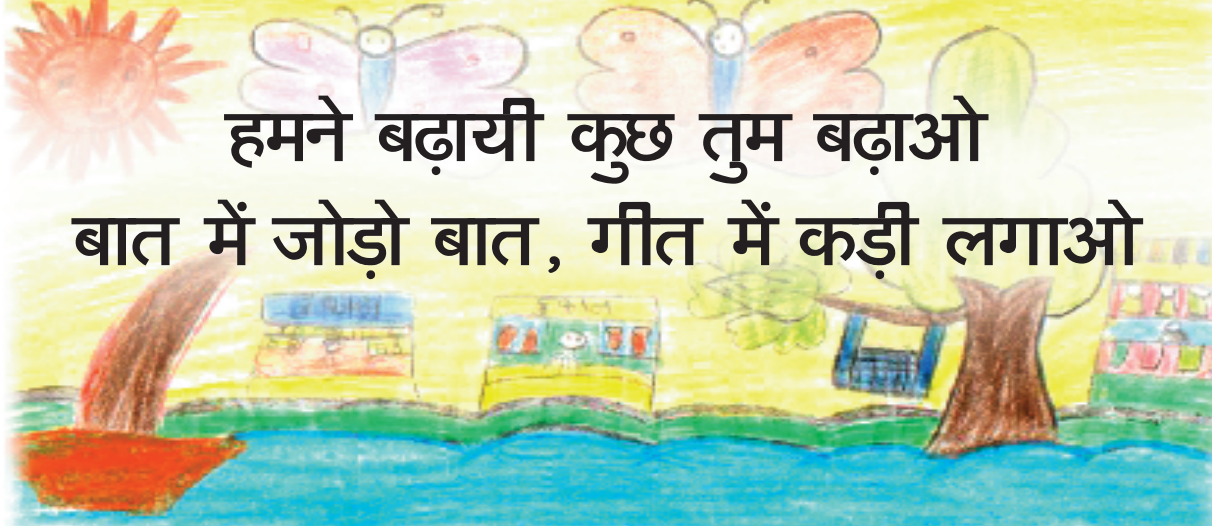 हमने बढ़ायी कुछ तुम बढ़ाओ
बात में जोड़ो बात, गीत में कड़ी लगाओ